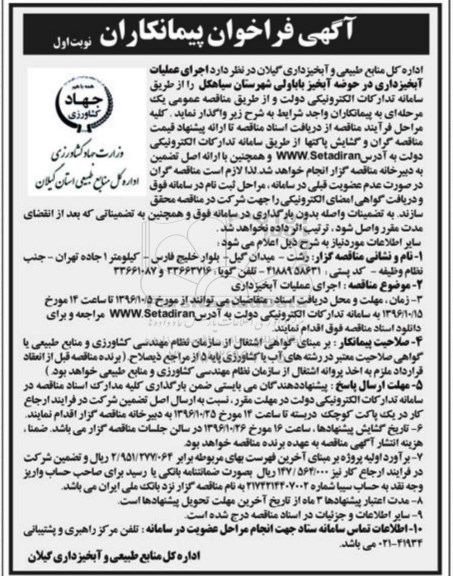 آگهی فراخوان پیمانکاران نوبت اول
همه با هم
جهاد
کشاورزی
وزارت جهاد کشاورزی
اداره کل منابع طبیعی استان گیلان
اداره کل منابع طبیعی و آبخیزداری گیلان در نظر دارد اجرای عملیات
آبخیزداری در حوضه آبخیز باباولی شهرستان سیاهکل را از طریق
سامانه تدارکات الکترونیکی دولت و از طریق مناقصه عمومی یک
مرحله‌ای به پیمانکاران واجد شرایط به شرح زیر واگذار نماید. کلیه
مراحل فرآیند مناقصه از دریافت اسناد مناقصه تا ارائه پیشنهاد قیمت
مناقصه گران و گشایش پاکتها از طریق سامانه تدارکات الکترونیکی
دولت به آدرس WWW.Setadiran و همچنین با ارائه اصل تضمین
به دبیرخانه مناقصه گزار انجام خواهد شد. لذا لازم است مناقصه گران
در صورت عدم عضویت قبلی در سامانه، مراحل ثبت نام در سامانه فوق
و دریافت گواهی امضای الکترونیکی را جهت شرکت در مناقصه محقق
سازند. به تضمینات واصله بدون بارگذاری در سامانه فوق و همچنین به تضمیناتی که بعد از انقضای
مدت مقرر واصل شود، ترتیب اثر داده نخواهد شد.
سایر اطلاعات موردنیاز به شرح ذیل اعلام می شود:
۱- نام و نشانی مناقصه گزار: رشت - میدان گیل - بلوار خلیج فارس - کیلومتر ۱ جاده تهران - جنب
نظام وظیفه - کد پستی: ۵۸۶۳۱ ۴۱۸۸۹ - تلفن گویا: ۳۳۶۶۳۷۱۶ و ۳۳۶۶۱۰۸۷
۲- موضوع مناقصه: اجرای عملیات آبخیزداری
۳- زمان، مهلت و محل دریافت اسناد: متقاضیان می‌توانند از مورخ ۱۳۹۶/۱۰/۵ تا ساعت ۱۴ مورخ
۱۳۹۶/۱۰/۱۵ به سامانه تدارکات الکترونیکی دولت به آدرس WWW.Setadiran مراجعه و برای
دانلود اسناد مناقصه فوق اقدام نمایند.
۴- صلاحیت پیمانکار: بر مبنای گواهی اشتغال از سازمان نظام مهندسی کشاورزی و منابع طبیعی یا
گواهی صلاحیت معتبر در رشته های آب یا کشاورزی پایه ۵ از مراجع ذیصلاح. (برنده مناقصه قبل از انعقاد
قرارداد ملزم به اخذ پروانه اشتغال از سازمان نظام مهندسی کشاورزی و منابع طبیعی خواهد بود.)
۵- مهلت ارسال پاسخ: پیشنهاددهندگان می بایستی ضمن بارگذاری کلیه مدارک اسناد مناقصه در
سامانه تدارکات الکترونیکی دولت در مهلت مقرر، نسبت به ارسال اصل تضمین شرکت در فرایند ارجاع
کار در یک پاکت کوچک دربسته تا ساعت ۱۴ مورخ ۱۳۹۶/۱۰/۲۵ به دبیرخانه مناقصه گزار اقدام نمایند.
۶- تاریخ گشایش پیشنهادها، ساعت ۱۶ مورخ ۱۳۹۶/۱۰/۲۶ در سالن جلسات مناقصه گزار می باشد. ضمنا،
هزینه انتشار آگهی مناقصه به عهده برنده مناقصه خواهد بود.
۷- برآورد اولیه پروژه بر مبنای آخرین فهرست بهای مربوطه برابر ۲/۹۵۱/۲۷۷/۰۶۴ ریال و تضمین شرکت
در فرایند ارجاع کار نیز ۱۴۷/۵۶۴/۰۰۰ ریال بصورت ضمانتنامه بانکی یا رسید برای صاحب حساب واریز
وجه نقد به حساب سیبا شماره ۲۱۷۴۲۱۴۴۰۷۰۰۲ به نام مناقصه گزار نزد بانک ملی ایران می باشد.
۸- مدت اعتبار پیشنهادها ۳ ماه از تاریخ آخرین مهلت تحویل پیشنهادها است.
۹- سایر اطلاعات و جزئیات در اسناد مناقصه درج شده است.
۱۰- اطلاعات تماس سامانه ستاد جهت انجام مراحل عضویت در سامانه: تلفن مرکز راهبری و پشتیبانی
۰۲۱-۴۱۹۳۴ می باشد.
اداره کل منابع طبیعی و آبخیزداری گیلان